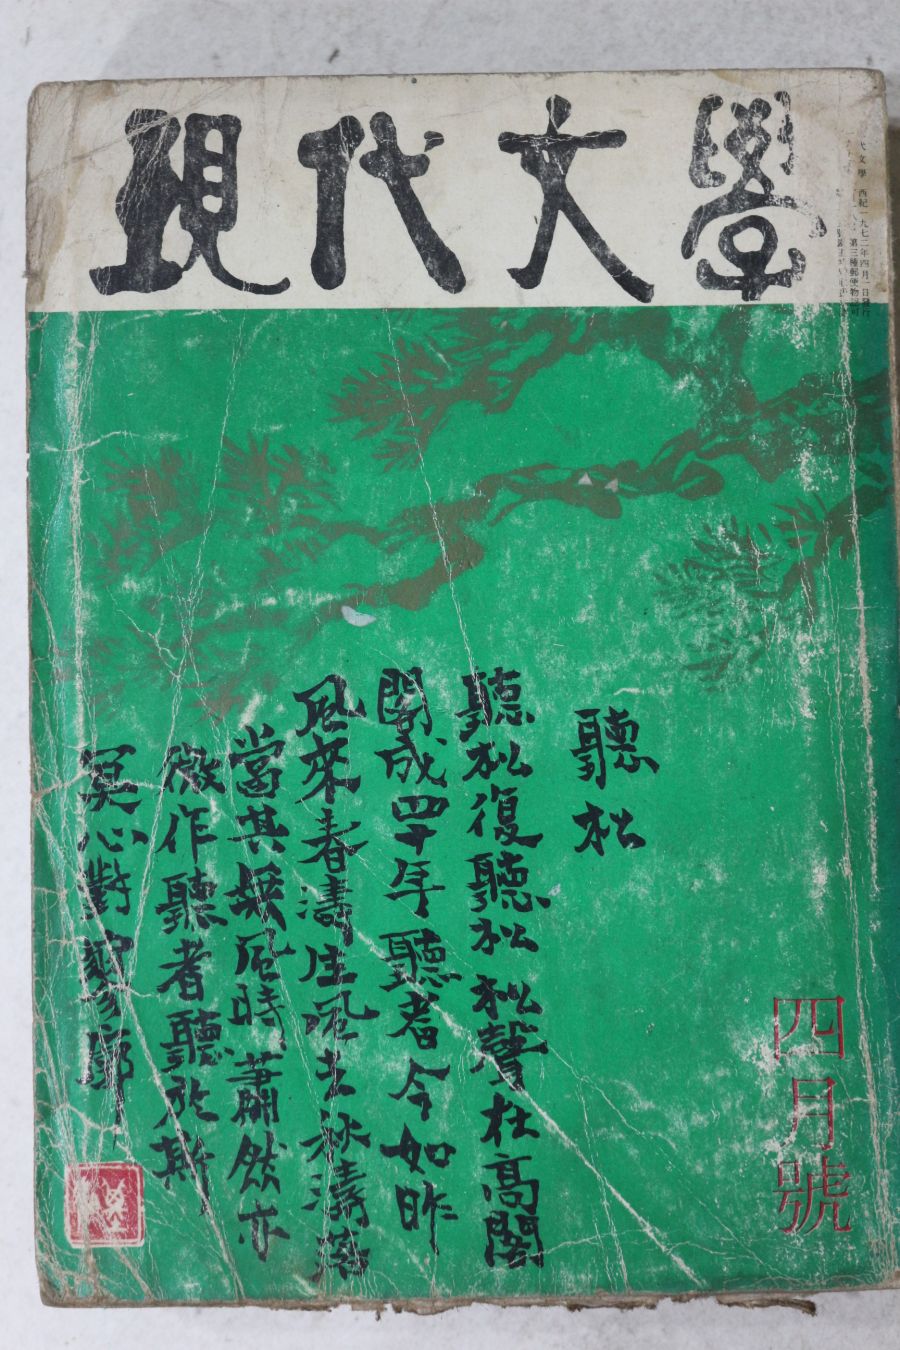 現代文學
代文學 西紀一九七二年四月一日發行
第三種郵便物
聽松
聽松復聽松松聲在高閣
閣成四十年聽者今如昨
風來春濤生風去秋濤落
當其無風時蕭然亦
微作聽者聽於斯
冥心對寥廓
四月號